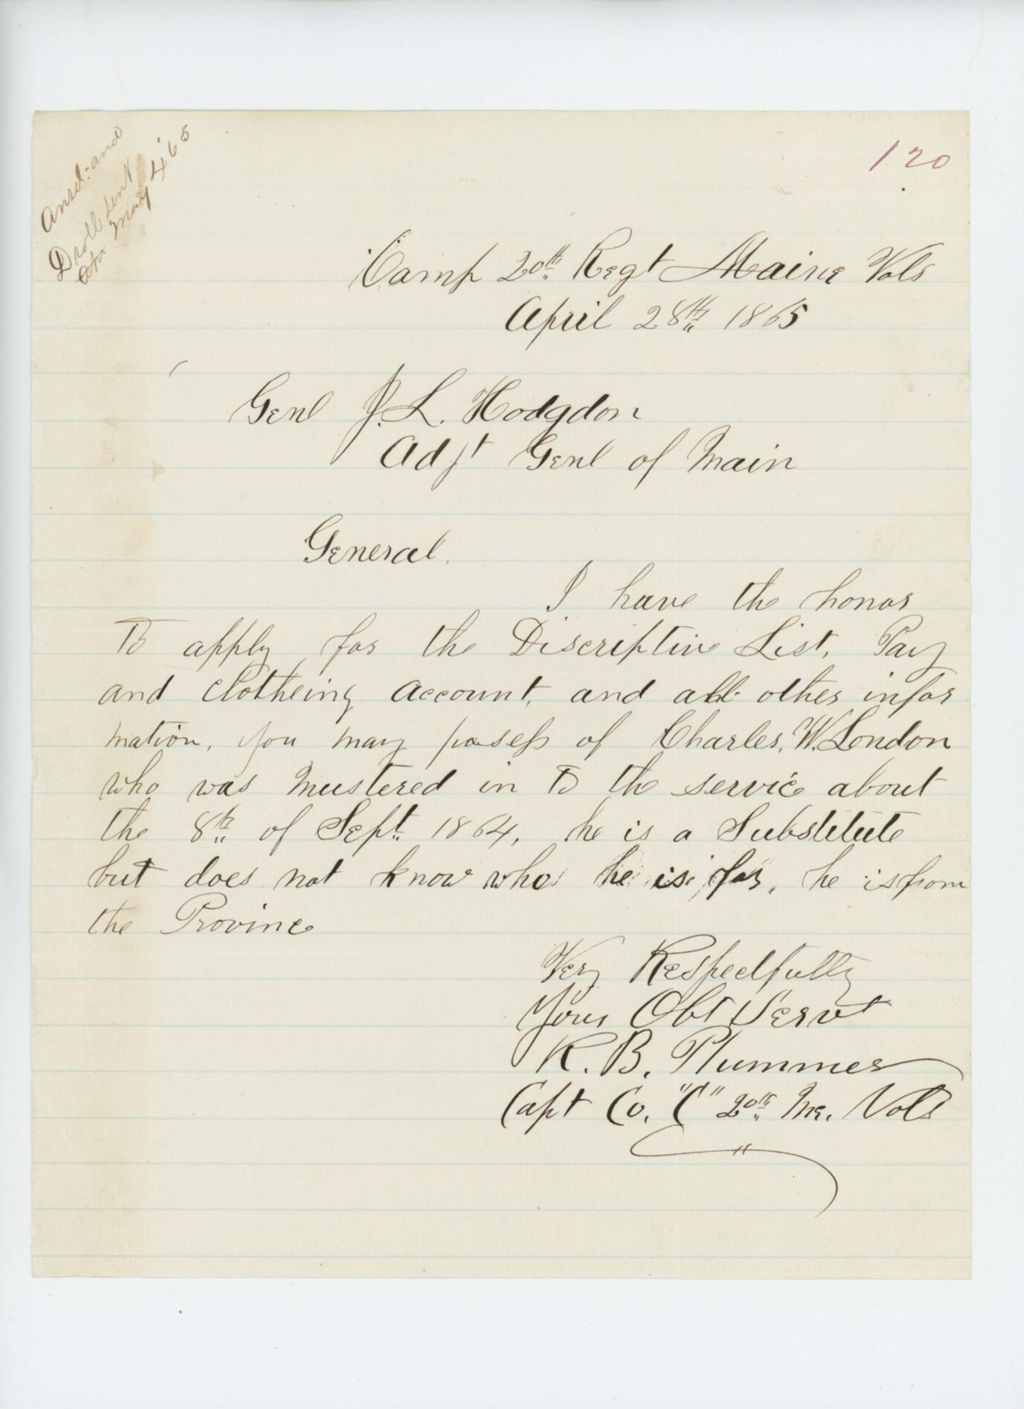 Ansd. and
D roll sent
May 4 '65
120
Camp 20th Regt Maine Vols
April 28th 1865
Genl J. L. Hodgdon
Adjt Genl of Main
General.
I have the honor
to apply for the Discriptive List, Pay
and Clotheing account, and all other infor
mation, you may posess of Charles, W. London
who was Mustered in to the service about
the 8th of Sept. 1864, he is a Substitute
but does not know who he is for, he is from
the Province
Very Respectfully
Your Obt Servt
R. B. Plummer
Capt Co. "C" 20th Me. Vols